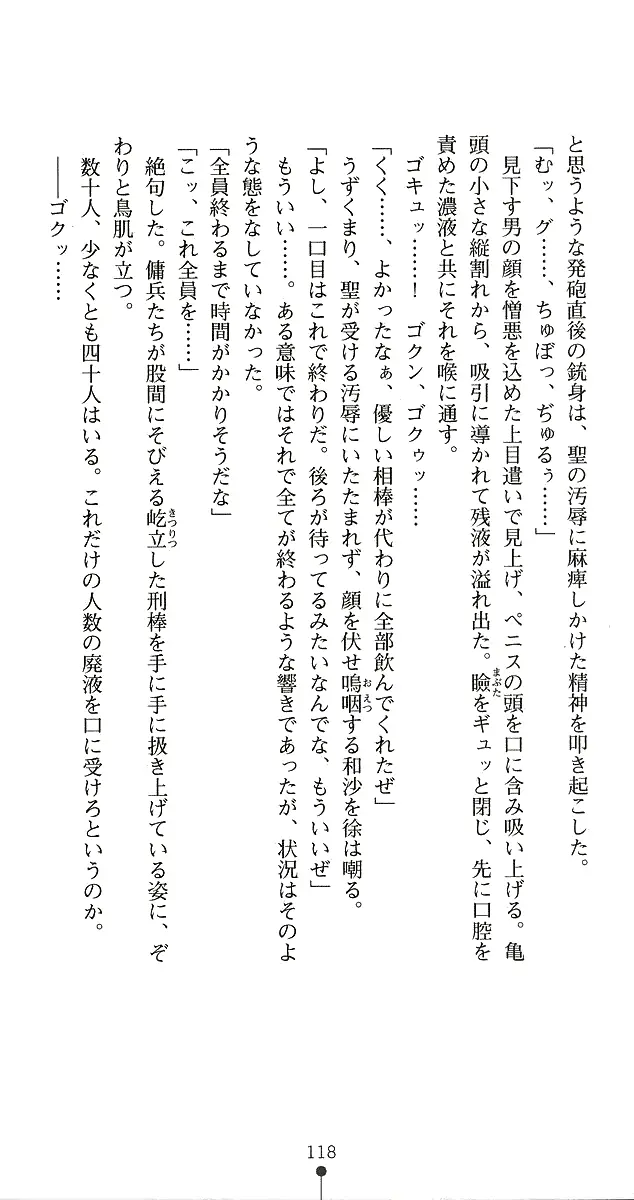 と思うような発砲直後の銃身は、聖の汚辱に麻痺しかけた精神を叩き起こした。
「むッ、グ……、ちゅぼっ、ぢゅるぅ……」
見下す男の顔を憎悪を込めた上目遣いで見上げ、ペニスの頭を口に含み吸い上げる。亀
頭の小さな縦割れから、吸引に導かれて残液が溢れ出た。瞼をギュッと閉じ、先に口腔を
まぶた
責めた濃液と共にそれを喉に通す。
ゴキュッ……！　ゴクン、ゴクゥッ……
「くく……、よかったなぁ、優しい相棒が代わりに全部飲んでくれたぜ」
うずくまり、聖が受ける汚辱にいたたまれず、顔を伏せ嗚咽する和沙を徐は嘲る。
おえつ
「よし、一口目はこれで終わりだ。後ろが待ってるみたいなんでな、もういいぜ」
もういい……。ある意味ではそれで全てが終わるような響きであったが、状況はそのよ
うな態をなしていなかった。
「全員終わるまで時間がかかりそうだな」
「こッ、これ全員を……」
絶句した。傭兵たちが股間にそびえる屹立した刑棒を手に手に扱き上げている姿に、ぞ
きつりつ
わりと鳥肌が立つ。
数十人、少なくとも四十人はいる。これだけの人数の廃液を口に受けろというのか。
――ゴクッ……
118